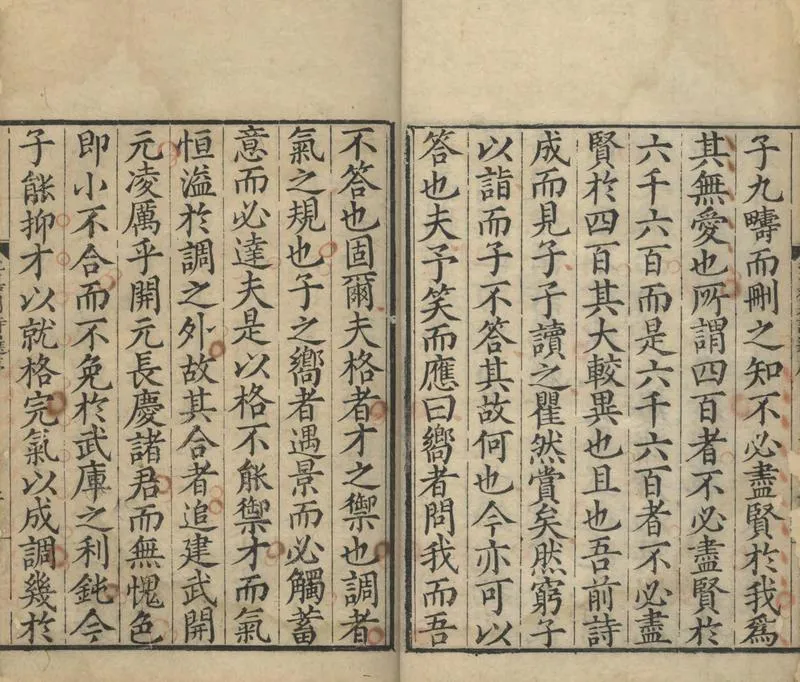 子九疇而刪之知不必盡賢於我爲
其無愛也所謂四百者不必盡賢於
六千六百而是六千六百者不必盡
賢於四百其大較異也且也吾前詩
成而見子子讀之瞿然賞矣然窮子
以詣而子不答其故何也今亦可以
答也夫予笑而應曰嚮者問我而吾
不答也固爾夫格者才之禦也調者
氣之規也子之嚮者遇景而必觸蓄
意而必達夫是以格不能禦才而氣
恒溢於調之外故其合者追建武開
元凌厲乎開元長慶諸君而無愧色
即小不合而不免於武庫之利鈍今
子能抑才以就格完氣以成調幾於